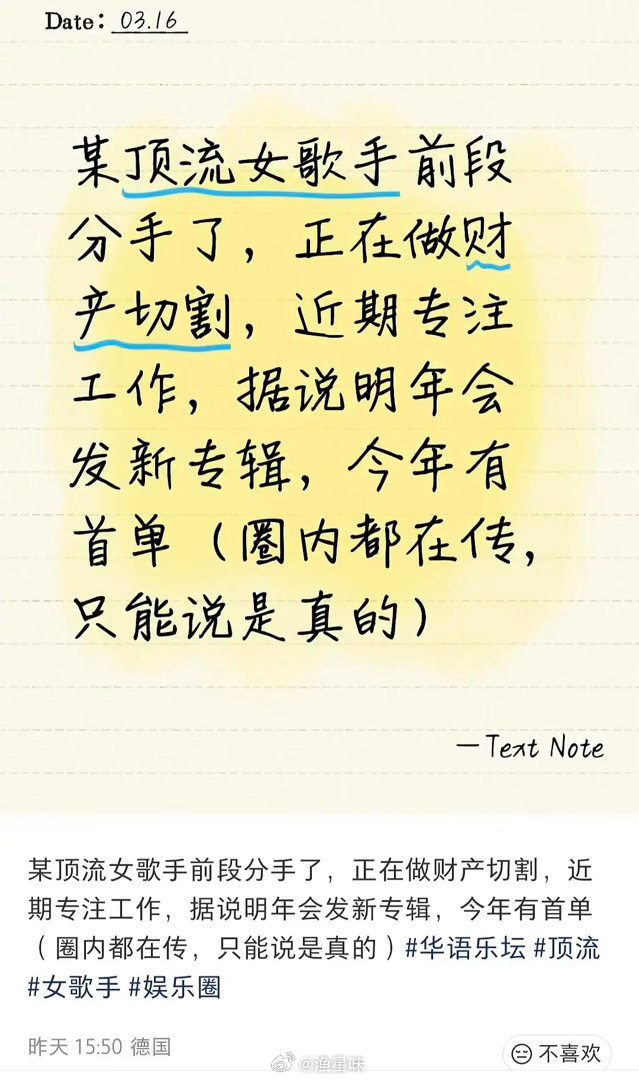 Date: 03.16
某顶流女歌手前段
分手了，正在做财
产切割，近期专注
工作，据说明年会
发新专辑，今年有
首单（圈内都在传，
只能说是真的）
—Text Note
某顶流女歌手前段分手了，正在做财产切割，近
期专注工作，据说明年会发新专辑，今年有首单
（圈内都在传，只能说是真的）#华语乐坛 #顶流
#女歌手 #娱乐圈
昨天 15:50 德国
不喜欢
@渔星味